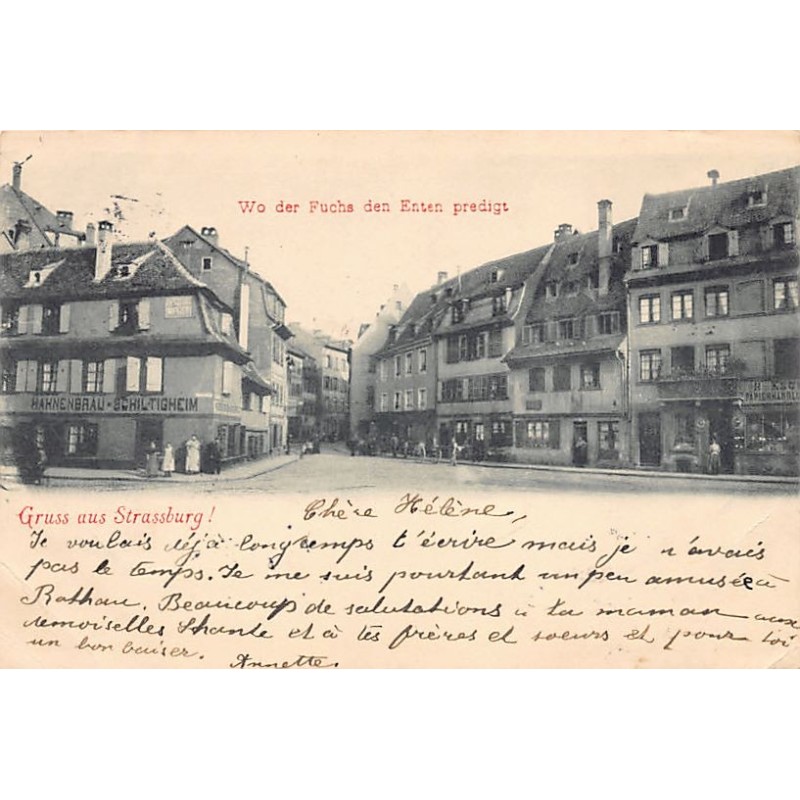 Wo der Fuchs den Enten predigt
HAHNENBRÄU-SCHILTIGHEIM
PAPIERHANDLU
Gruss aus Strassburg!
Chère Hélène,
Je voulais déjà longtemps t'écrire mais je n'avais
pas le temps. Je me suis pourtant un peu amusée à
Rothau. Beaucoup de salutations à ta maman aux
demoiselles et à tes frères et soeurs et pour toi
un bon baiser.
Annette.